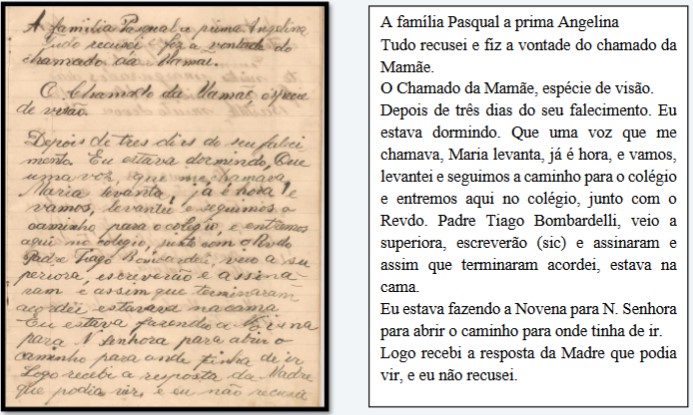 A familia Pasqual e prima Angelina
Tudo recusei e fez a vontade do
chamado da Mamae.
O Chamado da Mamae, especie
de visão.
Depois de tres dias do seu faleci
mento. Eu estava dormindo, Que
uma voz, que me chamava,
Maria levanta, já é hora, e
vamos, levantei e seguimos a
caminho para o colegio, e entremos
aqui no colegio, junto com o Revdo
Padre Tiago Bombardeli, veio a su
periora, escreverão e assina
ram e assim que terminaram
acordei estavava na cama
Eu estava fazendo a
para N Senhora para abrir o
caminho para onde tinha de ir
Logo recebi a resposta da Madre
que podia vir, e eu não recusei
A família Pasqual a prima Angelina
Tudo recusei e fiz a vontade do chamado da
Mamãe.
O Chamado da Mamãe, espécie de visão.
Depois de três dias do seu falecimento. Eu
estava dormindo. Que uma voz que me
chamava, Maria levanta, já é hora, e vamos,
levantei e seguimos a caminho para o colégio
e entremos aqui no colégio, junto com o
Revdo. Padre Tiago Bombardelli, veio a
superiora, escreverão (sic) e assinaram e
assim que terminaram acordei, estava na
cama.
Eu estava fazendo a Novena para N. Senhora
para abrir o caminho para onde tinha de ir.
Logo recebi a resposta da Madre que podia
vir, e eu não recusei.